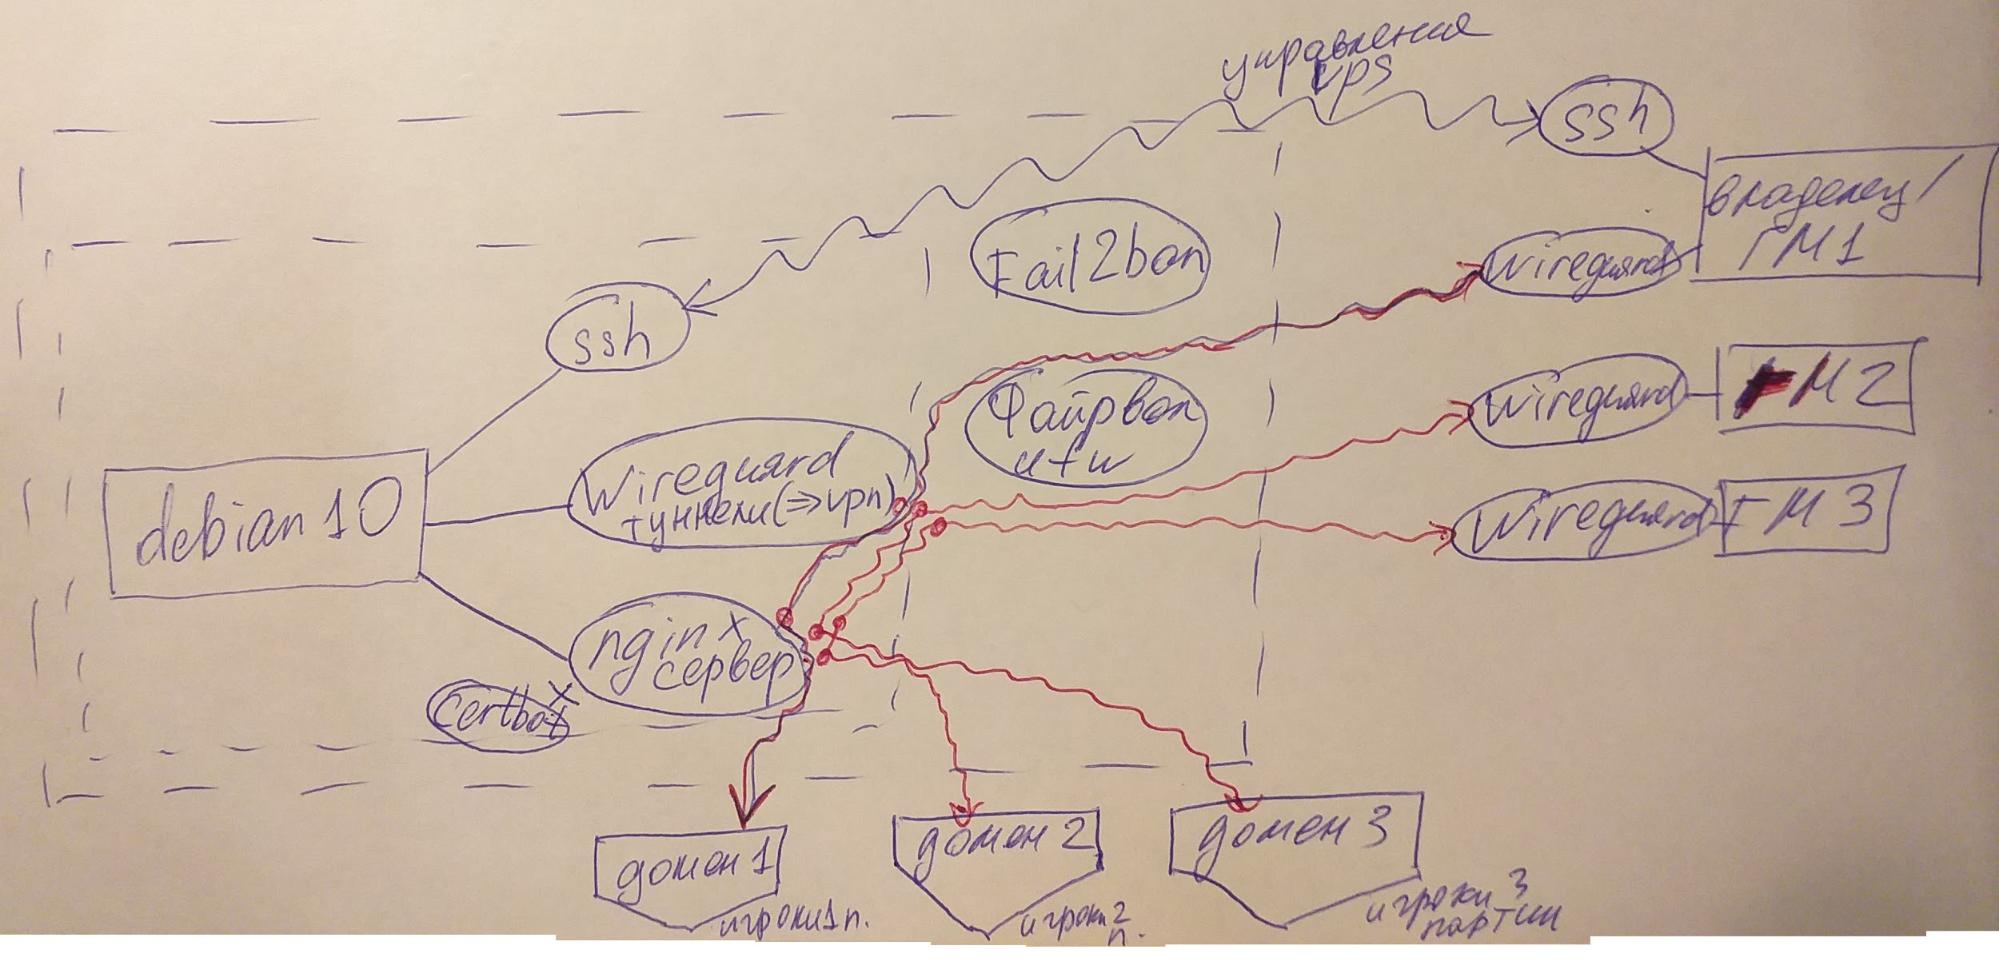 управления
vps
ssh
владелец/
ГМ1
Fail2ban
wireguard
ssh
Файрвол
ufw
wireguard
ГМ2
Wireguard
туннели(=>vpn)
debian10
Wireguard
ГМ3
nginx
сервер
certbot
домен1
игроки1п.
домен2
игроки2
п.
домен3
игроки 3
партии